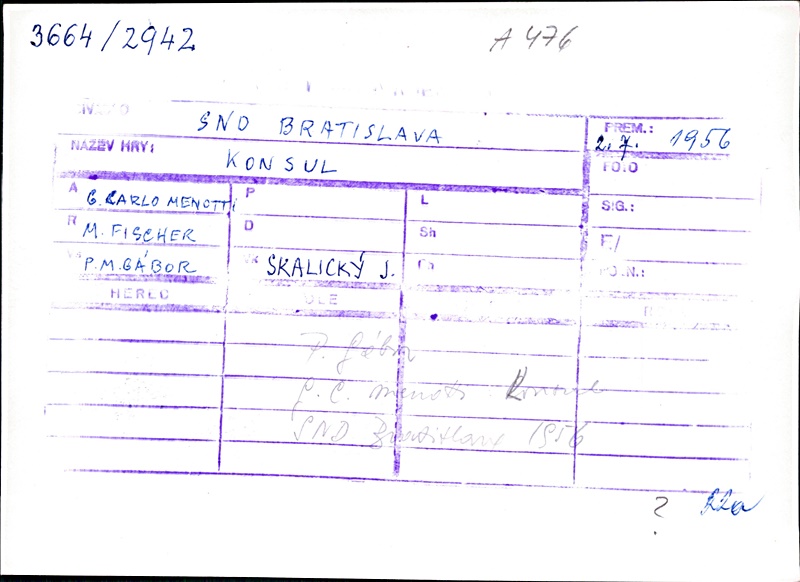 3664/2942
A 476
SND BRATISLAVA
PREM.: 2.7. 1956
NÁZEV HRY: KONSUL
FOTO
A G. CARLO MENOTTI
P
L
SIG.:
R M. FISCHER
D
Sh
F./
P.M. GÁBOR
VK SKALICKÝ J.
PO.N.:
P. Gábor
G. C. Menotti Konsul
SND Bratislava 1956
?